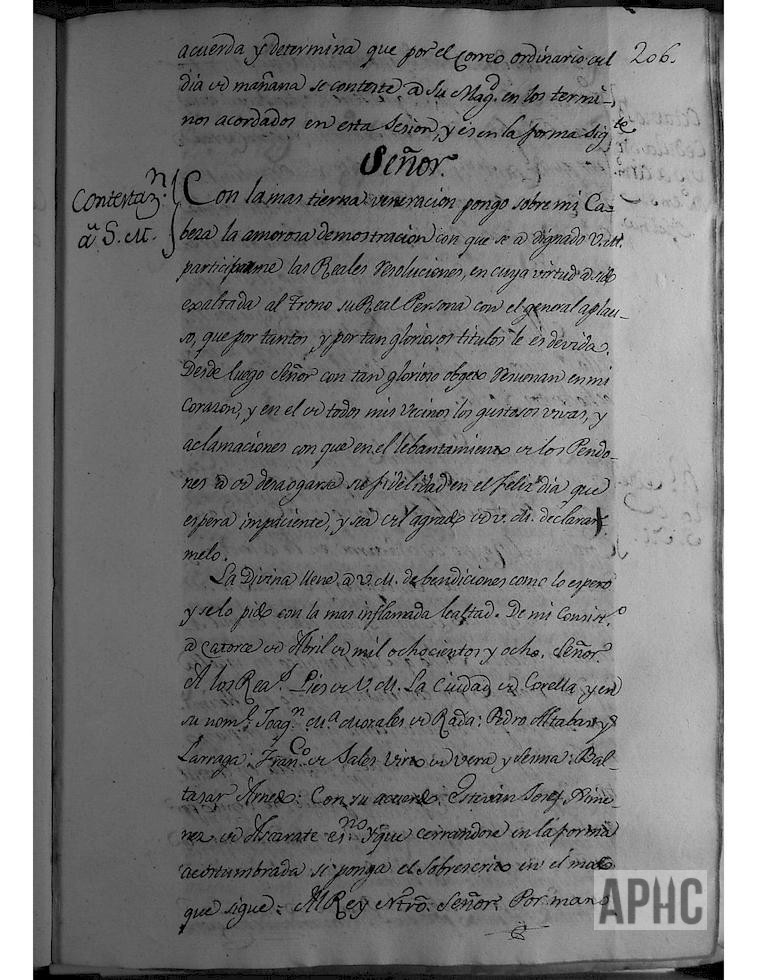 206.
acuerda y determina que por el Correo ordinario del
dia de mañana se conteste a Su Magd. en los termi-
nos acordados en esta Sesion, y es en la forma sigte
Señor.
Contestazn.
a S. M.
Con la mas tierna veneracion pongo sobre mi Ca-
beza la amorosa demostracion con que se a dignado V. M.
participarme las Reales resoluciones, en cuya virtud a sido
exaltada al Trono su Real Persona con el general aplau-
so, que por tantos, y por tan gloriosos titulos le es devida.
Desde luego Señor con tan glorioso objeto resuenan en mi
Corazon, y en el de todos mis vecinos los gustosos vivas, y
aclamaciones con que en el lebantamiento de los Pendo-
nes a de desaogarse su fidelidad en el feliz dia que
espera impaciente, y sea del agrado de V. M. declarar-
melo.
La Divina llene a V. M. de bendiciones como lo espero
y se lo pido con la mas inflamada lealtad. De mi Consisto.
a Catorce de Abril de mil ochocientos y ocho. Señor.
A los Reas. Pies de V. M. La Ciudad de Corella, y en
su nome. Joaqn. Ma. Morales de Rada: Pedro Altabas y
Larraga: Franco. de Sales Virto de Vera y Senna: Bal-
tasar Arnedo: Con su acuerdo, Estevan Josef Xime-
nez de Ascarate esno. Y que cerrandose en la forma
acostumbrada se ponga el Sobrescrito en el modo
que sigue: Al Rey Ntro. Señor. Por mano
APHC